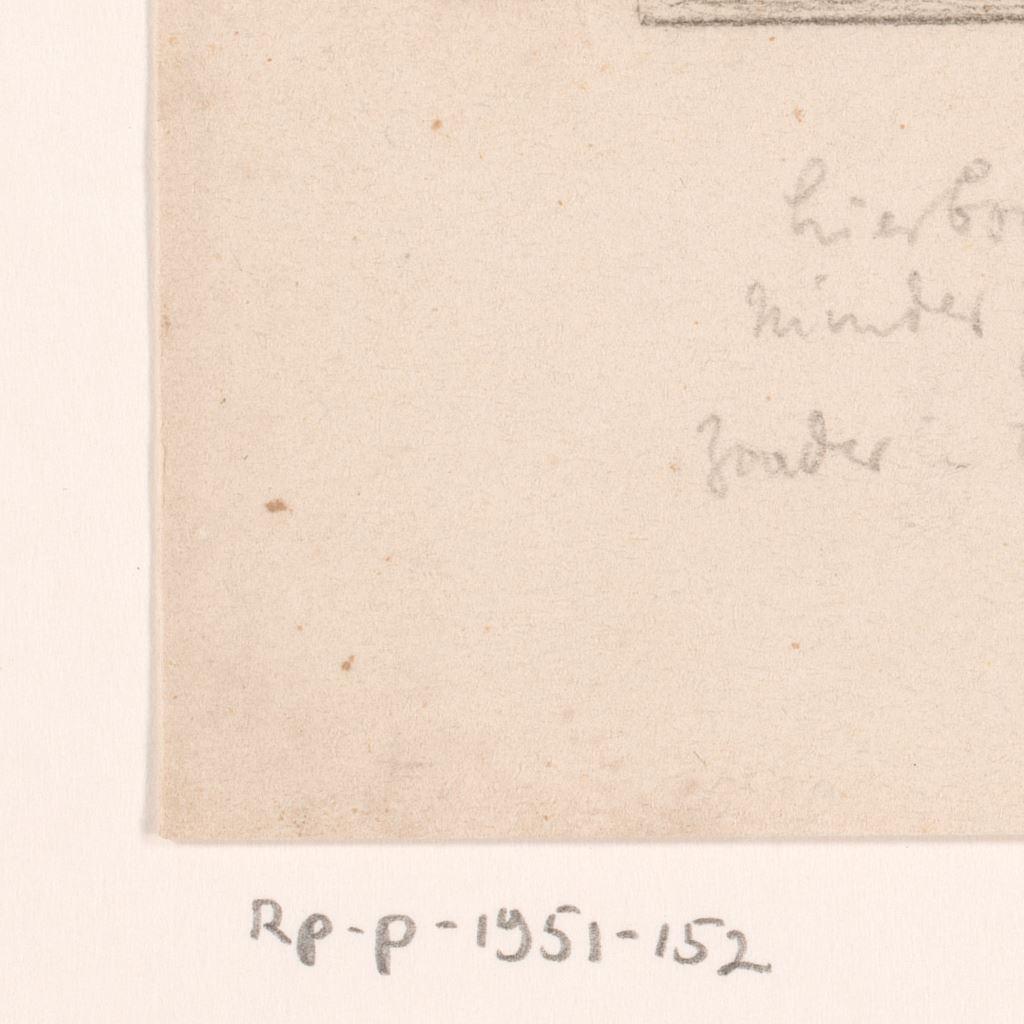 hierbo
minder
zonder
Rp-p-1951-152